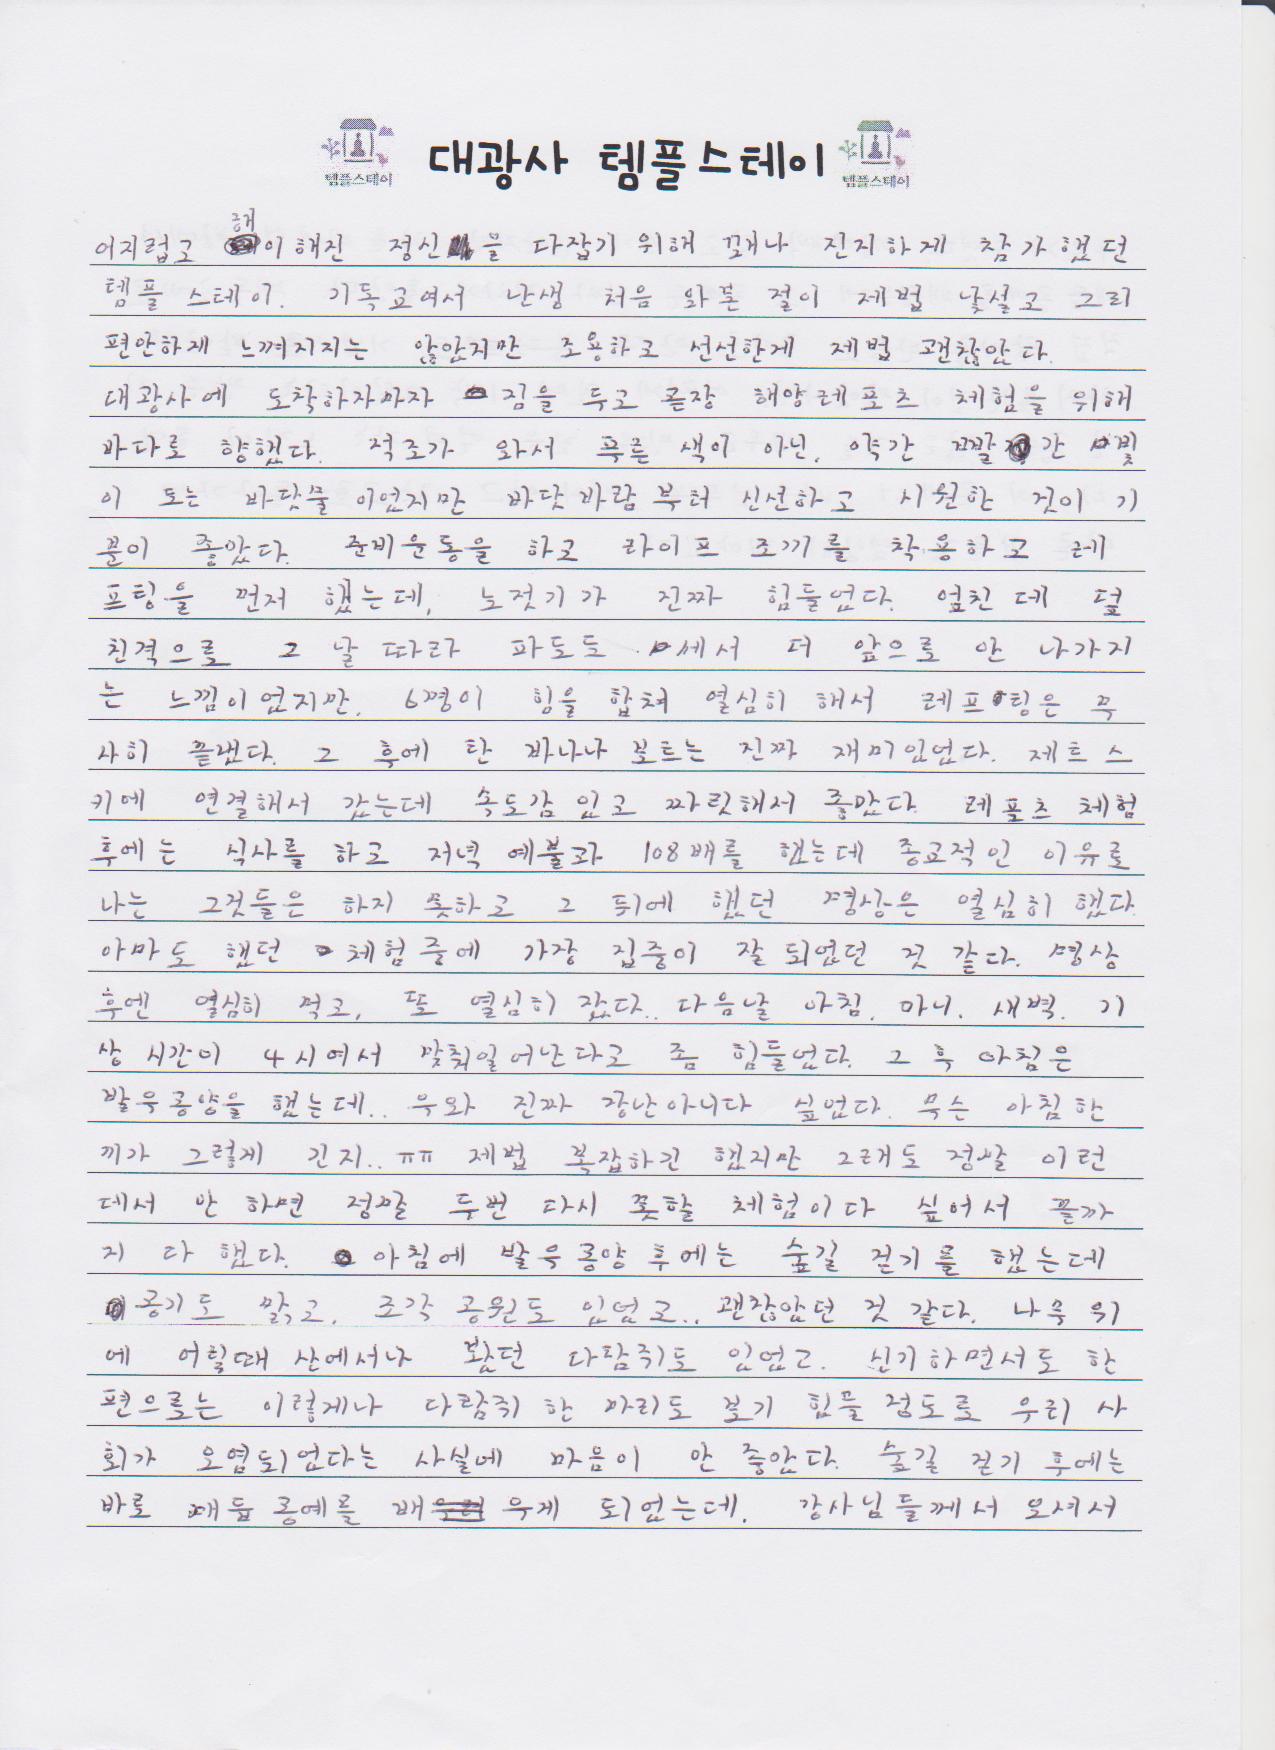 템플스테이 대광사 템플스테이 템플스테이
해
어지럽고 이해진 정신을 다잡기 위해 꽤나 진지하게 참가했던
템플 스테이. 기독교여서 난생 처음 와본 절이 제법 낯설고 그리
편안하게 느껴지지는 않았지만 조용하고 선선한게 제법 괜찮았다.
대광사에 도착하자마자 짐을 두고 곧장 해양레포츠 체험을 위해
바다로 향했다. 적조가 와서 푸른 색이 아닌, 약간 빨간 빛
이 도는 바닷물이었지만 바닷바람부터 신선하고 시원한 것이 기
분이 좋았다. 준비운동을 하고 라이프 조끼를 착용하고 레
프팅을 먼저 했는데, 노젓기가 진짜 힘들었다. 엎친데 덮
친격으로 그 날따라 파도도 세서 더 앞으로 안 나가지
는 느낌이었지만, 6명이 힘을 합쳐 열심히 해서 레프팅은 무
사히 끝냈다. 그 후에 탄 바나나 보트는 진짜 재미있었다. 제트스
키에 연결해서 갔는데 속도감 있고 짜릿해서 좋았다. 레포츠 체험
후에는 식사를 하고 저녁 예불과 108배를 했는데 종교적인 이유로
나는 그것들은 하지 못하고 그 뒤에 했던 명상은 열심히 했다.
아마도 했던 체험 중에 가장 집중이 잘 되었던 것 같다. 명상
후엔 열심히 먹고, 또 열심히 잤다.. 다음날 아침, 아니, 새벽. 기
상 시간이 4시여서 맞춰일어난다고 좀 힘들었다. 그 후 아침은
발우공양을 했는데.. 우와 진짜 장난아니다 싶었다. 무슨 아침 한
끼가 그렇게 긴지.. ㅠㅠ 제법 복잡하긴 했지만 그래도 정말 이런
데서 안 하면 정말 두번 다시 못할 체험이다 싶어서 끝까
지 다 했다. 아침에 발우공양 후에는 숲길 걷기를 했는데
공기도 맑고, 조각 공원도 있었고.. 괜찮았던 것 같다. 나무 위
에 어릴때 산에서나 봤던 다람쥐도 있었고. 신기하면서도 한
편으로는 이렇게나 다람쥐 한 마리도 보기 힘들 정도로 우리 사
회가 오염되었다는 사실에 마음이 안 좋았다. 숲길 걷기 후에는
바로 매듭 공예를 배우게 되었는데, 강사님들께서 오셔서